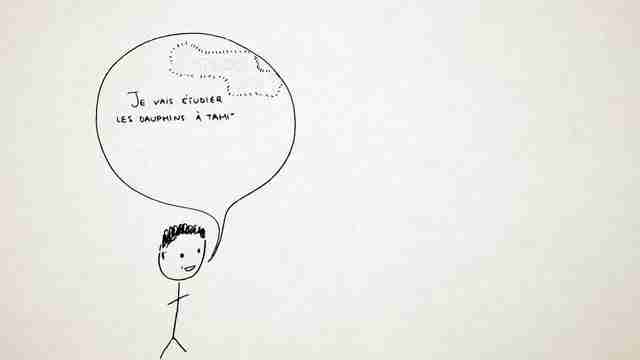 JE VAIS ÉTUDIER
LES DAUPHINS À TAHI-